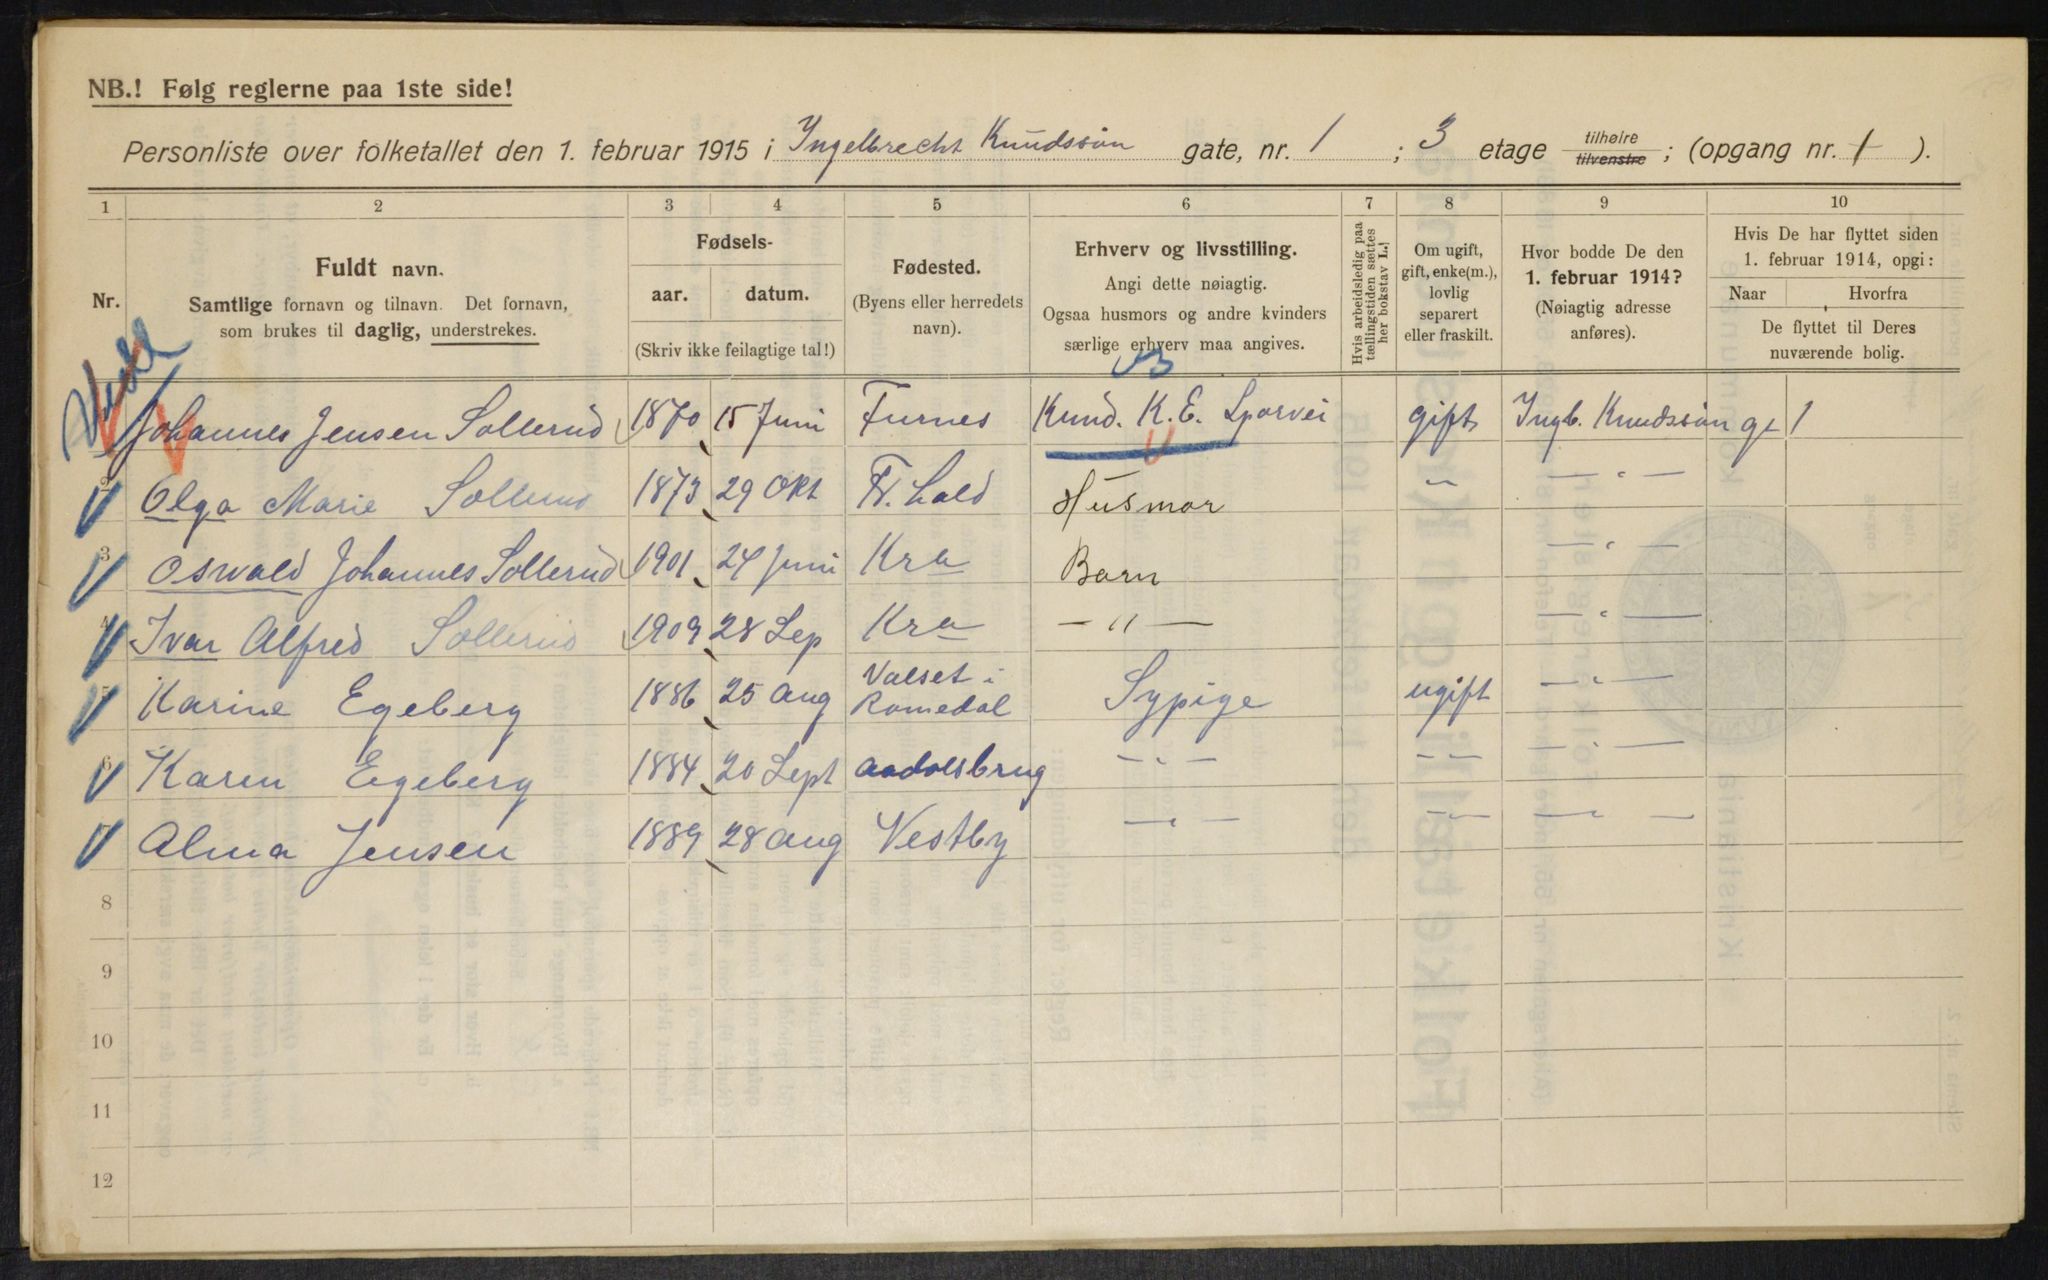 NB.! Følg reglerne paa 1ste side!
Personliste over folketallet den 1. februar 1915 i Ingelbrecht Knudssøn gate, nr. 1 ; 3 etage tilhøire tilvenstre ; (opgang nr. 1 ).
1 2 3 4 5 6 7 8 9 10
Nr.
Fuldt navn.
Samtlige fornavn og tilnavn. Det fornavn,
som brukes til daglig, understrekes.
Fødsels-
aar. datum.
(Skriv ikke feilagtige tal!)
Fødested.
(Byens eller herredets
navn).
Erhverv og livsstilling.
Angi dette nøiagtig.
Ogsaa husmors og andre kvinders
særlige erhverv maa angives.
Hvis arbeidsledig paa
tællingstiden sættes
her bokstav L.!
Om ugift,
gift, enke(m.),
lovlig
separert
eller fraskilt.
Hvor bodde De den
1. februar 1914?
(Nøiagtig adresse
anføres).
Hvis De har flyttet siden
1. februar 1914, opgi:
Naar Hvorfra
De flyttet til Deres
nuværende bolig.
Johannes Jensen Sollerud 1870 15 Juni Furnes Kund. K. E. Sporvei gift Ingb. Knudssøn gt 1
2 Olga Marie Sollerud 1873 29 Okt Fr. hald Husmor — " — — " —
3 Oswald Johannes Sollerud 1901 24 Juni Kra Barn — " —
4 Ivar Alfred Sollerud 1909 28 Sep Kra — " — — " —
5 Karine Egeberg 1886 25 Aug Valset i Romedal Sypige ugift — " —
6 Karen Egeberg 1884 20 Sept Aadalsbrug — " — — " — — " —
7 Alma Jensen 1889 28 Aug Vestby — " — — " — — " —
8
9
10
11
12